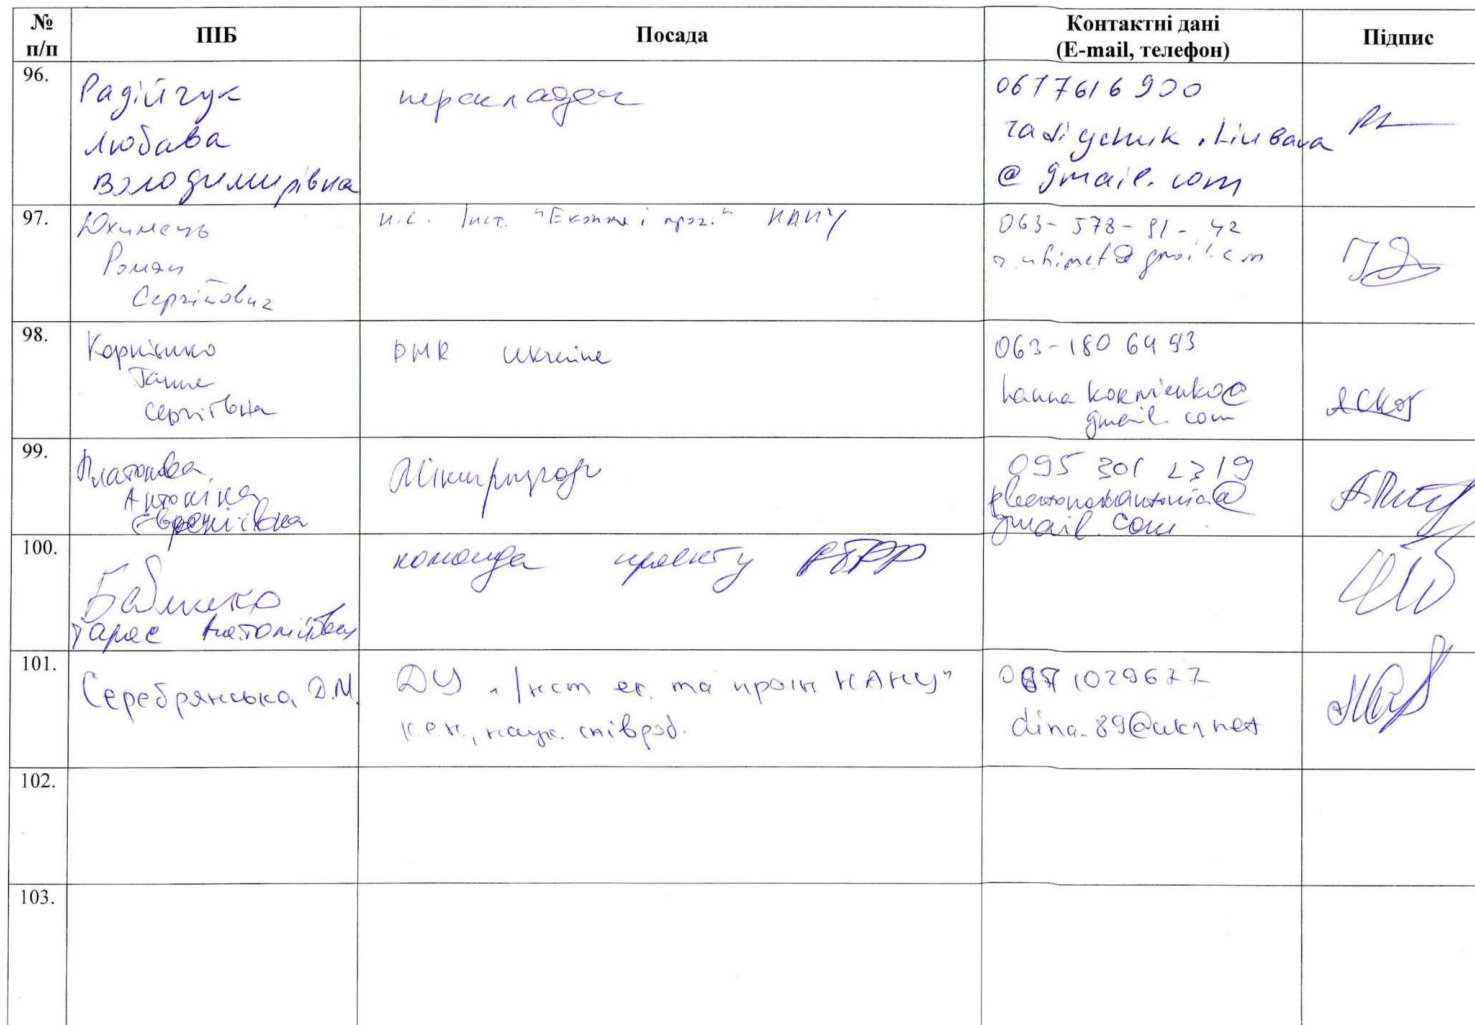 № п/п ПІБ Посада Контактні дані (E-mail, телефон) Підпис
96.
Радійчук
Любава
Володимирівна
перекладач
0677616900
radiychuk.liubava
@gmail.com
97.
Юхимець
Роман
Сергійович
н.с. Інст. "Економ і прог." НАНУ
063-578-91-42
98.
Корнієнко
Ганна
Сергіївна
DMR Ukraine
063-180 64 93
hanna kornienko@
gmail.com
99.
Платонова
Антоніна
Євгеніївна
Мінприроди
095 301 2319
platonovaantonia@
gmail.com
100.
Бабиненко
Тарас Анатолійович
команда проекту
101.
Серебрянська Д.М.
ДУ "Інст ек. та прогн НАНУ"
к.е.н, наук. співроб.
0971029677
dina_89@ukr net
102.
103.